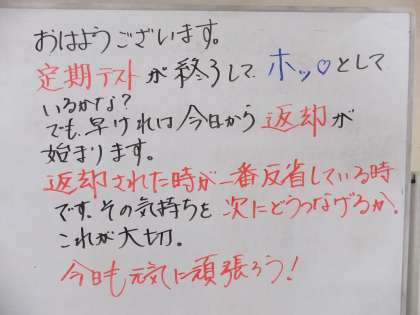 おはようございます。
定期テストが終了して、ホッ♡として
いるかな?
でも、早ければ今日から返却が
始まります。
返却された時が一番反省している時
です。その気持ちを次にどうつなげるか。
これが大切。
今日も元気に頑張ろう!